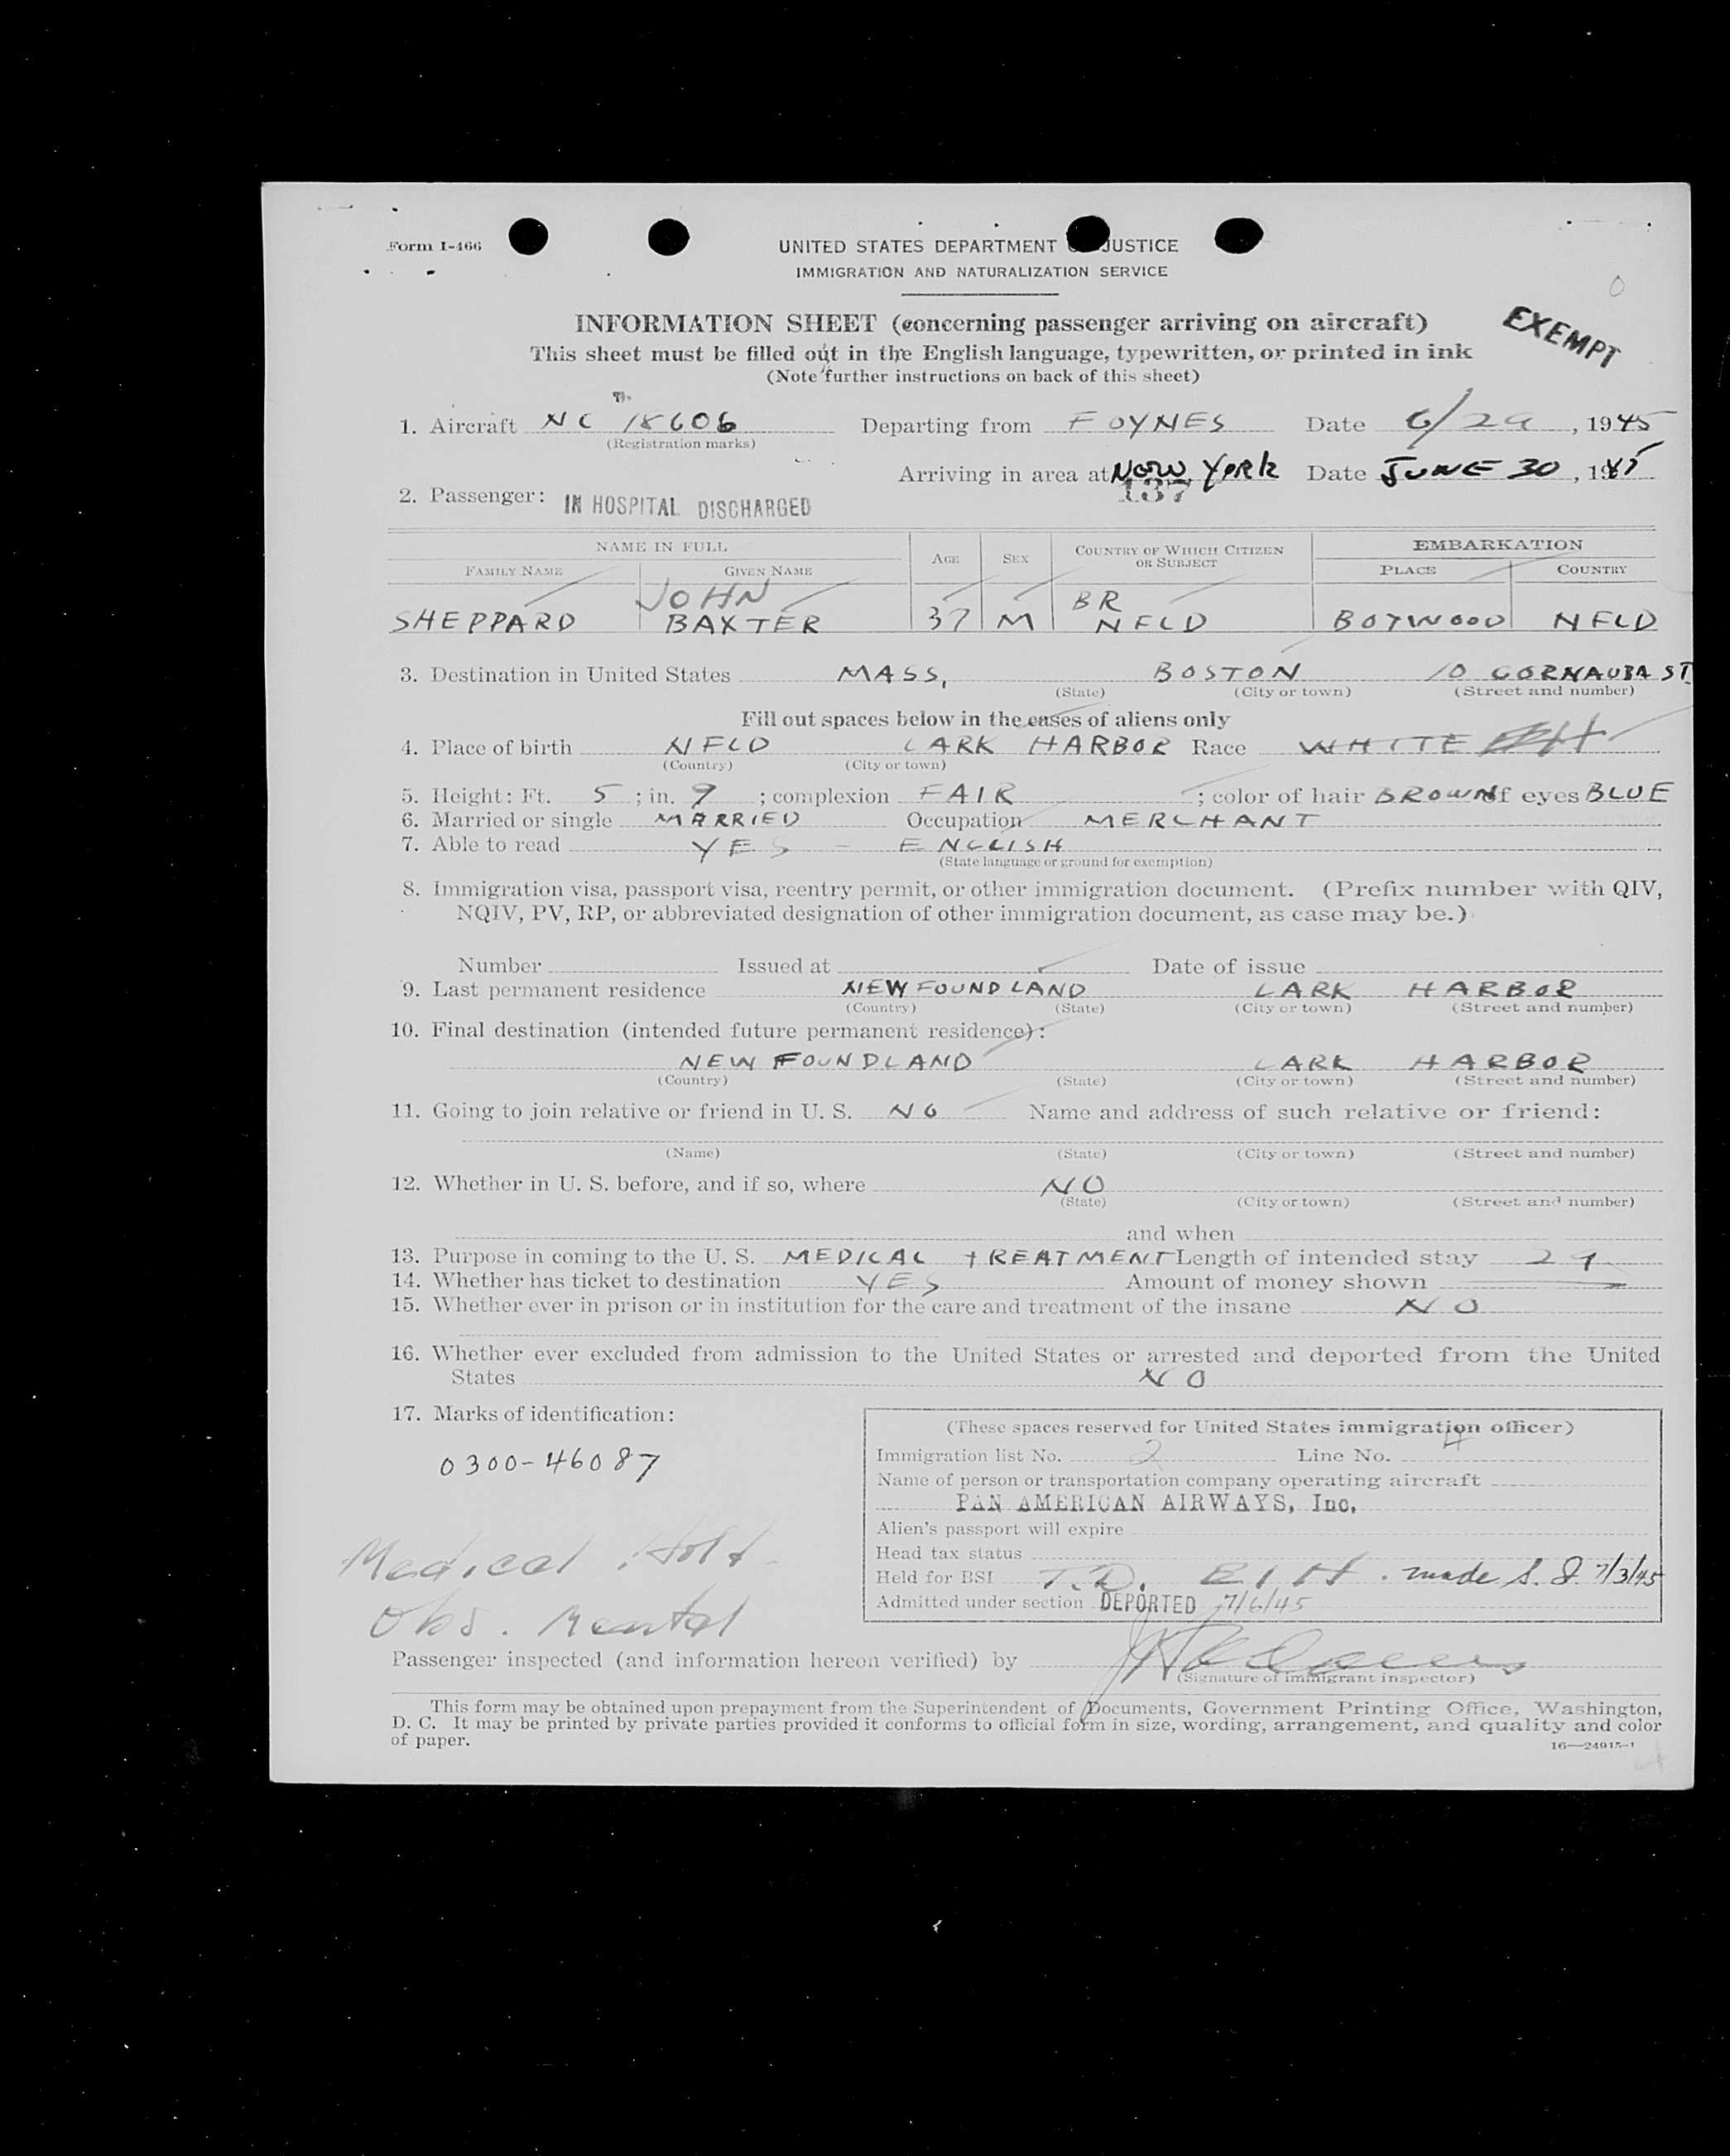 Form I-466
UNITED STATES DEPARTMENT JUSTICE
IMMIGRATION AND NATURALIZATION SERVICE
INFORMATION SHEET (concerning passenger arriving on aircraft)
EXEMPT
This sheet must be filled out in the English language, typewritten, or printed in ink
(Note further instructions on back of this sheet)
1. Aircraft NC 18606 Departing from FOYNES Date 6/29, 1945
(Registration marks)
Arriving in area at New York Date JUNE 30, 1945
137
2. Passenger: IN HOSPITAL DISCHARGED
NAME IN FULL AGE SEX COUNTRY OF WHICH CITIZEN OR SUBJECT EMBARKATION
FAMILY NAME GIVEN NAME PLACE COUNTRY
JOHN BR
SHEPPARD BAXTER 37 M NFLD BOTWOOD NFLD
3. Destination in United States MASS, BOSTON 10 ST
(State) (City or town) (Street and number)
Fill out spaces below in the cases of aliens only
4. Place of birth NFLD LARK HARBOR Race WHITE
(Country) (City or town)
5. Height: Ft. 5; in. 9; complexion FAIR; color of hair BROWN of eyes BLUE
6. Married or single MARRIED Occupation MERCHANT
7. Able to read YES - ENGLISH
(State language or ground for exemption)
8. Immigration visa, passport visa, reentry permit, or other immigration document. (Prefix number with QIV,
NQIV, PV, RP, or abbreviated designation of other immigration document, as case may be.)
Number Issued at Date of issue
9. Last permanent residence NEWFOUNDLAND LARK HARBOR
(Country) (State) (City or town) (Street and number)
10. Final destination (intended future permanent residence):
NEW FOUNDLAND LARK HARBOR
(Country) (State) (City or town) (Street and number)
11. Going to join relative or friend in U. S. NO Name and address of such relative or friend:
(Name) (State) (City or town) (Street and number)
12. Whether in U. S. before, and if so, where NO
(State) (City or town) (Street and number)
and when
13. Purpose in coming to the U. S. MEDICAL TREATMENT Length of intended stay 29
14. Whether has ticket to destination YES Amount of money shown
15. Whether ever in prison or in institution for the care and treatment of the insane NO
16. Whether ever excluded from admission to the United States or arrested and deported from the United
States NO
17. Marks of identification:
0300-46087
Medical Hold
Obs. Mental
(These spaces reserved for United States immigration officer)
Immigration list No. 2 Line No. 4
Name of person or transportation company operating aircraft
PAN AMERICAN AIRWAYS, Inc.
Alien's passport will expire
Head tax status
Held for BSI T.D. made S. I. 7/3/45
Admitted under section DEPORTED 7/6/45
Passenger inspected (and information hereon verified) by
(Signature of immigrant inspector)
This form may be obtained upon prepayment from the Superintendent of Documents, Government Printing Office, Washington,
D. C. It may be printed by private parties provided it conforms to official form in size, wording, arrangement, and quality and color
of paper.
16—24915-1